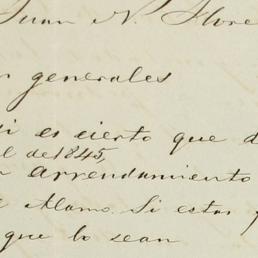 Juan N. Flore
generales
si es cierto que d
l de 1845,
n arrendamiento
e Alamo. Si estas
que lo sean